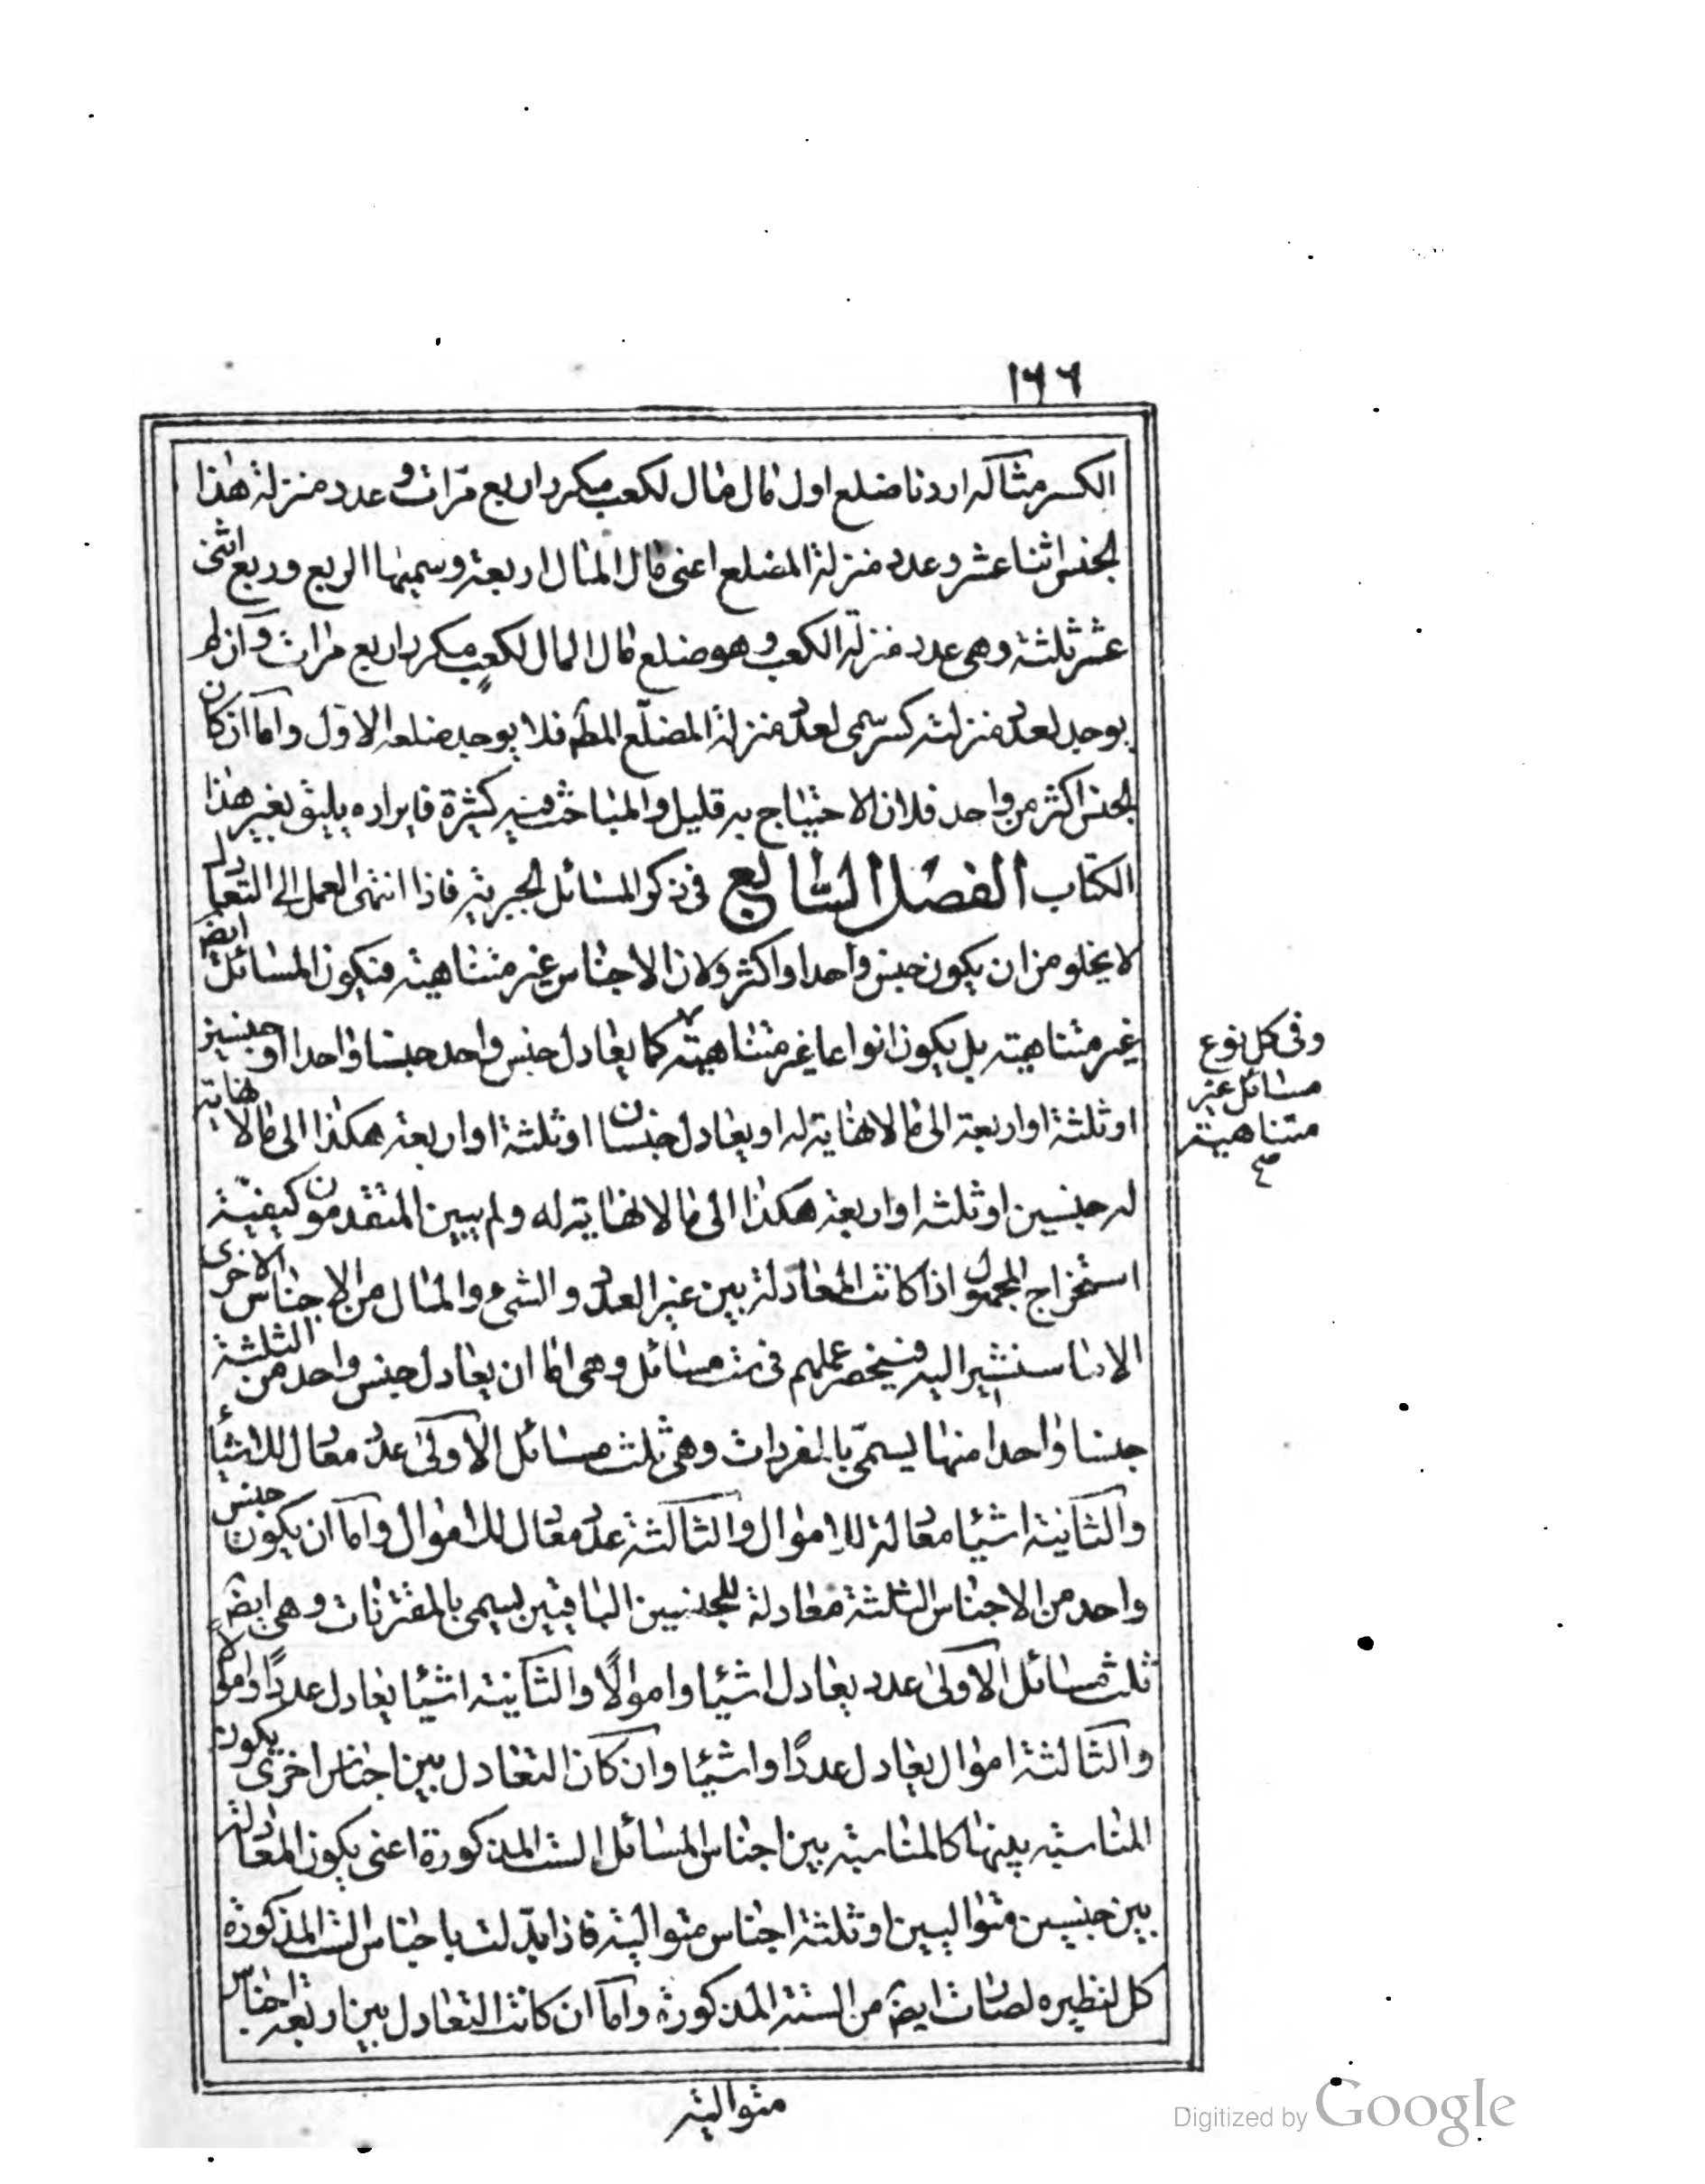 ١٦٦
الكسر مثاله اردنا ضلع اول مال مال لكعب مكرد اربع مرات و عدد منزلة هذا
لجنس اثنا عشر و عدد منزلة المضلع اعنى مال المال اربعة و سميها الربع و ربع اثنى
عشر ثلثة و هى عدد منزلة الكعب و هو ضلع مال المال لكعب مكرد اربع مرات و ان لم
يوجد لعدد منزلته كسر سمى لعدد منزلة المضلّع المطم فلا يوجد ضلعه الاوّل و امّا ان كان
لجنس اكثر من واحد فلان الاحتياج به قليل و المباحث فيه كثيرة فايراده يليق بغير هذا
الكتاب الفصل السّابع فى ذكر المسائل لجبرية فاذا انتهى العمل الى التعادل
لا يخلو من ان يكون جنس واحدا و اكثر و لان الاجناس غير متناهية فيكون المسائل ايضا
غير متناهية بل يكون انواعا غير متناهية كما يعادل جنس واحد جنسا واحدا او جنسين
او ثلثة او اربعة الى ما لا نهاية له او يعادل جنسان او ثلثة او اربعة هكذا الى ما لا نهاية
له جنسين او ثلثه او اربعة هكذا الى ما لا نهاية له و لم يبين المتقدمون كيفيّة
استخراج المجهول اذا كانت المعادلة بين غير العدد و الشىء و المال من الاجناس الاخرى
الا ما سنشير اليه فينحصر عملهم فى ست مسائل و هى امّا ان يعادل جنس واحد من الثلثة
جنسا واحدا منها يسمّى بالمفردات و هى ثلث مسائل الاولى عدد معادل للاشيا
و الثانية اشيا معادلة للاموال و الثالثة عدد معادل للاموال و امّا ان يكون جنس
واحد من الاجناس الثلثة معادلة للجنسين الباقيين يسمى بالمقترنات و هى ايضا
ثلث مسائل الاولى عدد يعادل اشيا و اموالًا و الثانية اشيا يعادل عددًا و اموالا
و الثالثة اموال يعادل عددًا و اشيا و ان كان التعادل بين اجناس اخرى يكون
المناسبة بينها كالمناسبة بين اجناس المسائل الست المذكورة اعنى يكون المعادلة
بين جنسين متواليين او ثلثة اجناس متوالية فاذا بدّلت باجناس الست المذكورة
كل لنظيره لصارت ايضا من الستة المذكورة و امّا ان كانت التعادل بين اربعة اجناس
متوالية
و فى كل نوع
مسائل غير
متناهية
صح
Digitized by Google